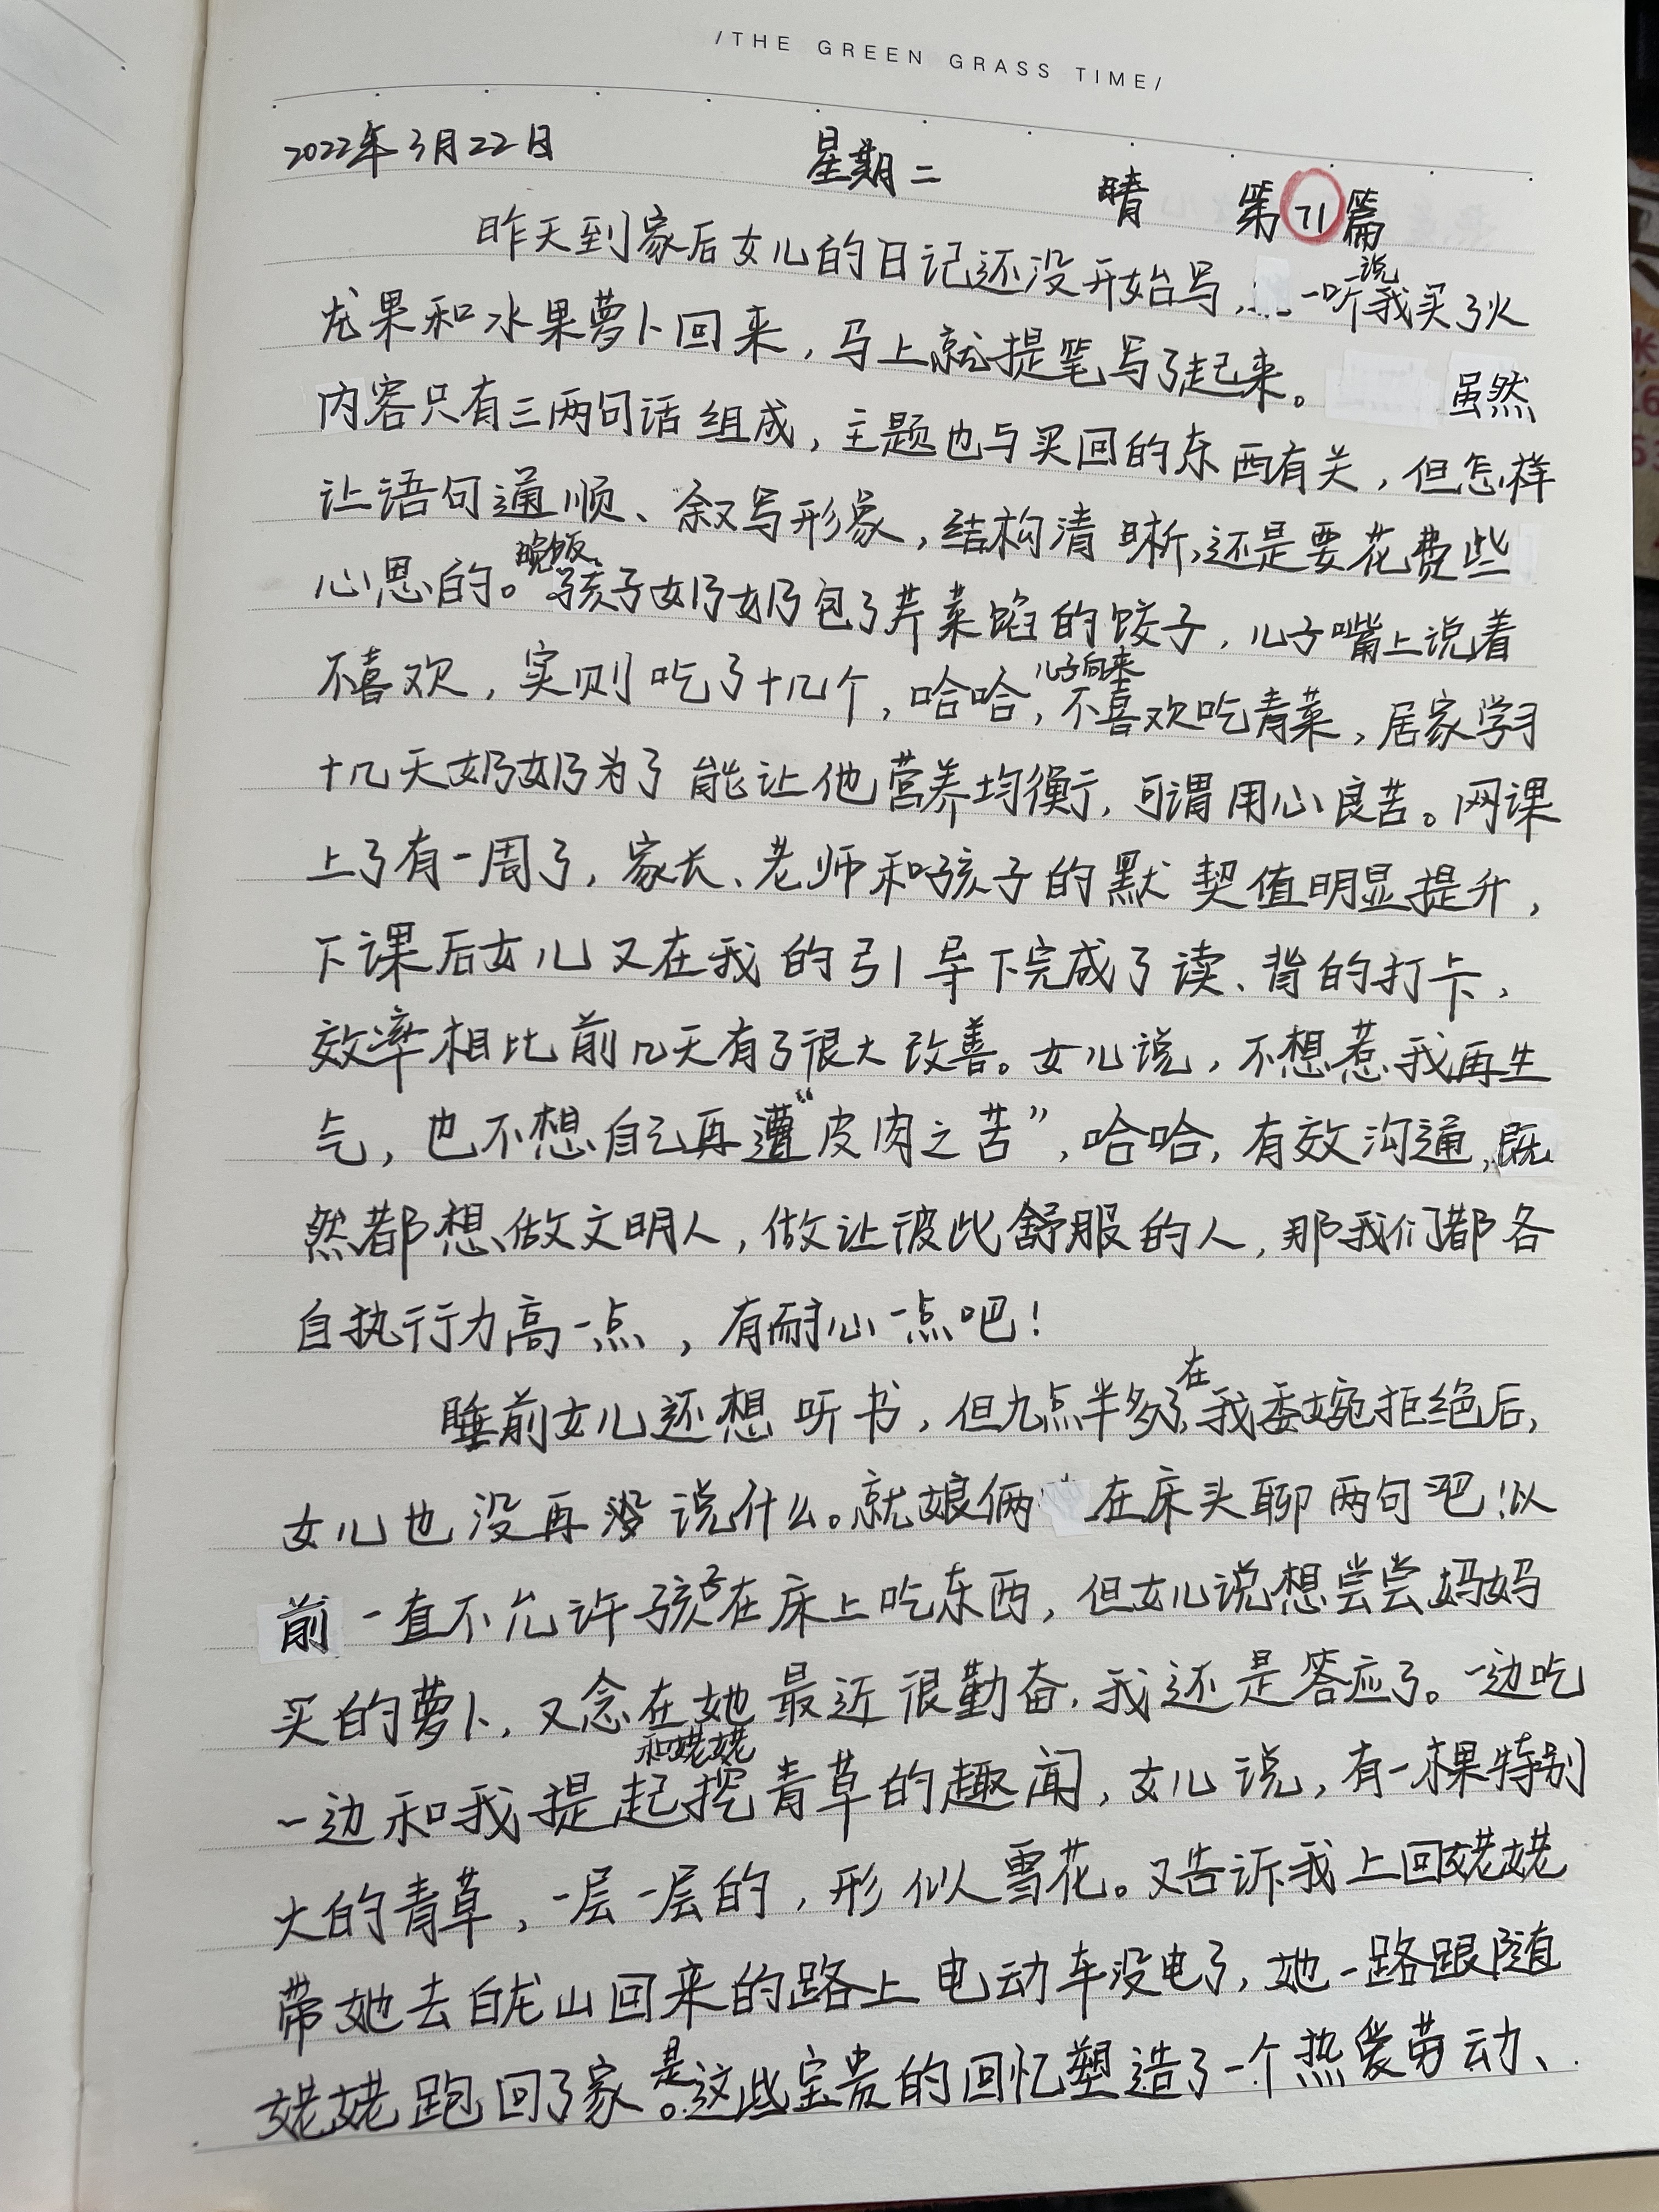 /THE GREEN GRASS TIME/
2022年3月22日 星期二 晴 第71篇
昨天到家后女儿的日记还没开始写,一听说我买了火
龙果和水果萝卜回来,马上就提笔写了起来。虽然
内容只有三两句话组成,主题也与买回的东西有关,但怎样
让语句通顺、叙写形象,结构清晰,还是要花费些
心思的。晚饭孩子奶奶包了芹菜馅的饺子,儿子嘴上说着
不喜欢,实则吃了十几个,哈哈,儿子向来不喜欢吃青菜,居家学习
十几天奶奶为了能让他营养均衡,可谓用心良苦。网课
上了有一周了,家长、老师和孩子的默契值明显提升,
下课后女儿又在我的引导下完成了读、背的打卡,
效率相比前几天有了很大改善。女儿说,不想惹我再生
气,也不想自己再遭“皮肉之苦”,哈哈,有效沟通,既
然都想做文明人,做让彼此舒服的人,那我们都各
自执行力高一点,有耐心一点吧!
睡前女儿还想听书,但九点半多了,在我委婉拒绝后,
女儿也没再没说什么。就娘俩在床头聊两句吧!以
前一直不允许孩子在床上吃东西,但女儿说想尝尝妈妈
买的萝卜,又念在她最近很勤奋,我还是答应了。一边吃
一边和我提起和姥姥挖青草的趣闻,女儿说,有一棵特别
大的青草,一层一层的,形似雪花。又告诉我上回姥姥
带她去白龙山回来的路上电动车没电了,她一路跟随
姥姥跑回了家。是这些宝贵的回忆塑造了一个热爱劳动、